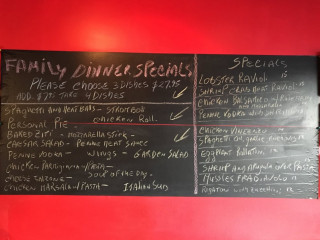 FAMILY DINNER SPECIALS
PLEASE CHOOSE 3 DISHES $27.95
ADD $7.95 4 DISHES
SPAGHETTI AND MEATBALLS - STROMBOLI
PERSONAL PIE - CHICKEN ROLL
BAKED ZITI - MOZZARELLA STICK
CAESAR SALAD - PENNE MEAT SAUCE
PENNE VODKA - WINGS - GARDEN SALAD
CHICKEN PARMIGIANA w/PASTA
SOUP OF THE DAY
CHICKEN MARSALA w/PASTA - ITALIAN SUBS
SPECIALS
LOBSTER RAVIOLI
SHRIMP CRABMEAT RAVIOLI
CHICKEN BALSAMIC
PENNE VODKA
CHICKEN VINCENZO
SPAGHETTI OIL GARLIC
EGGPLANT ROLLATINI
SHRIMP PASTA
MUSSLES FRADIAVOLO
RIGATONI